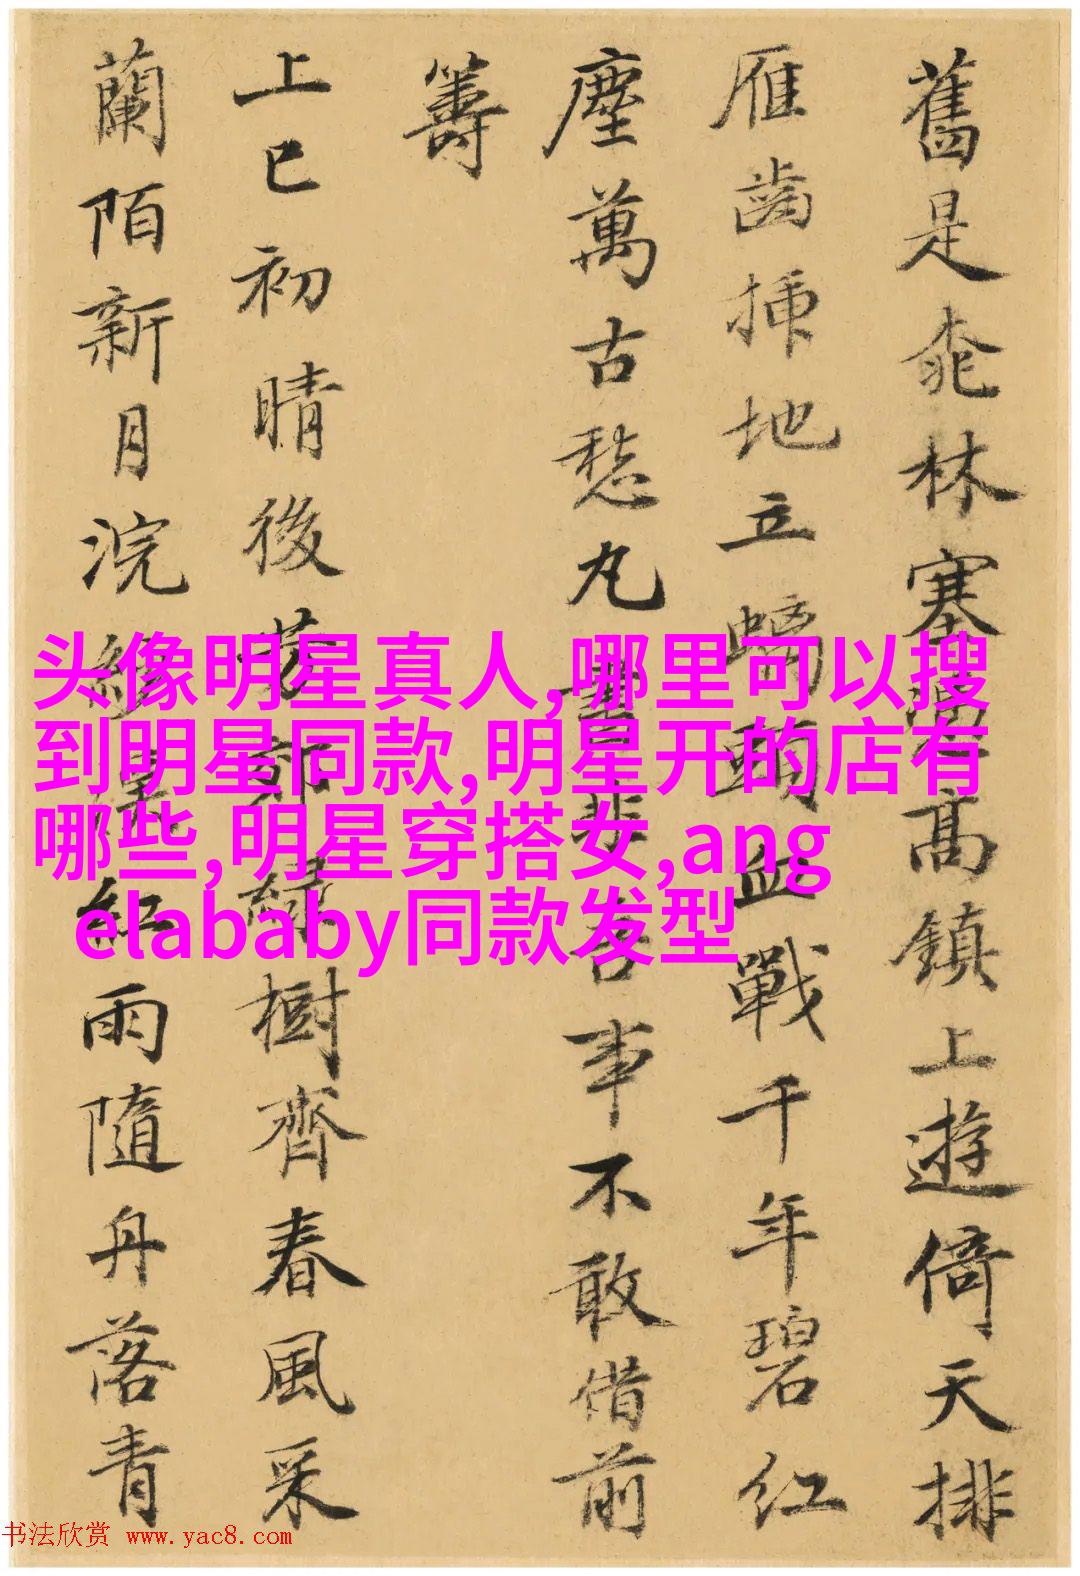 舊是桃林塞
高鎮上遊倚天排
雁齒插地立螭
血戰千年碧紅
塵萬古愁丸
吾事不敢借前
籌
上巳初晴後
樹齊春風采
蘭陌新月浣
紅雨隨舟落青
头像明星真人,哪里可以搜
到明星同款,明星开的店有
哪些,明星穿搭女,ang
elababy同款发型
书法欣赏 www.yac8.com